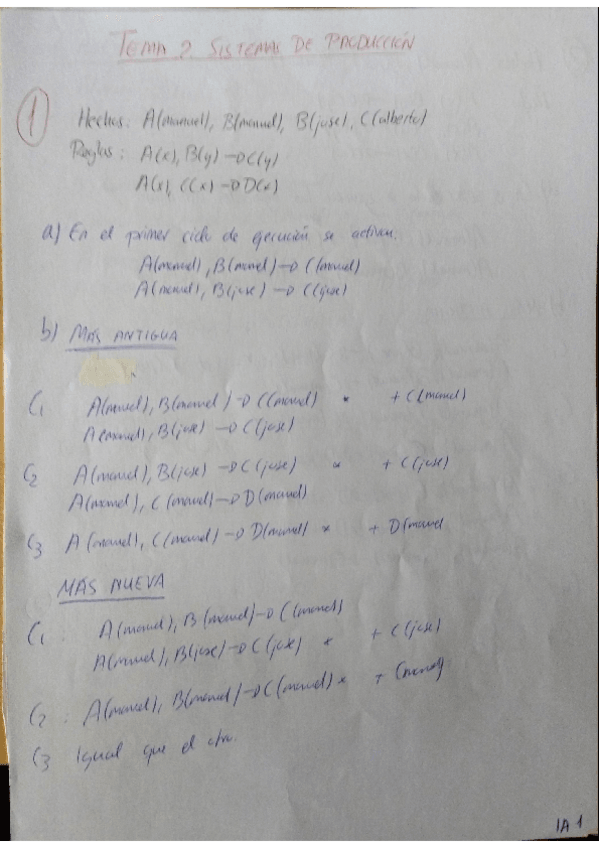 TEMA 2. SISTEMAS DE PRODUCCIÓN
1
Hechos: A(manuel), B(manuel), B(jose), C(alberto)
Reglas: A(x), B(y) → C(y)
A(x), C(x) → D(x)
a) En el primer ciclo de ejecución se activan:
A(manuel), B(manuel) → C(manuel)
A(manuel), B(jose) → C(jose)
b) MÁS ANTIGUA
C1 A(manuel), B(manuel) → C(manuel) * + C(manuel)
A(manuel), B(jose) → C(jose)
C2 A(manuel), B(jose) → C(jose) * + C(jose)
A(manuel), C(manuel) → D(manuel)
C3 A(manuel), C(manuel) → D(manuel) * + D(manuel
MÁS NUEVA
C1: A(manuel), B(manuel) → C(manuel)
A(manuel), B(jose) → C(jose) * + C(jose)
C2: A(manuel), B(manuel) → C(manuel) * + C(manuel)
C3 Igual que el otro.
IA 1